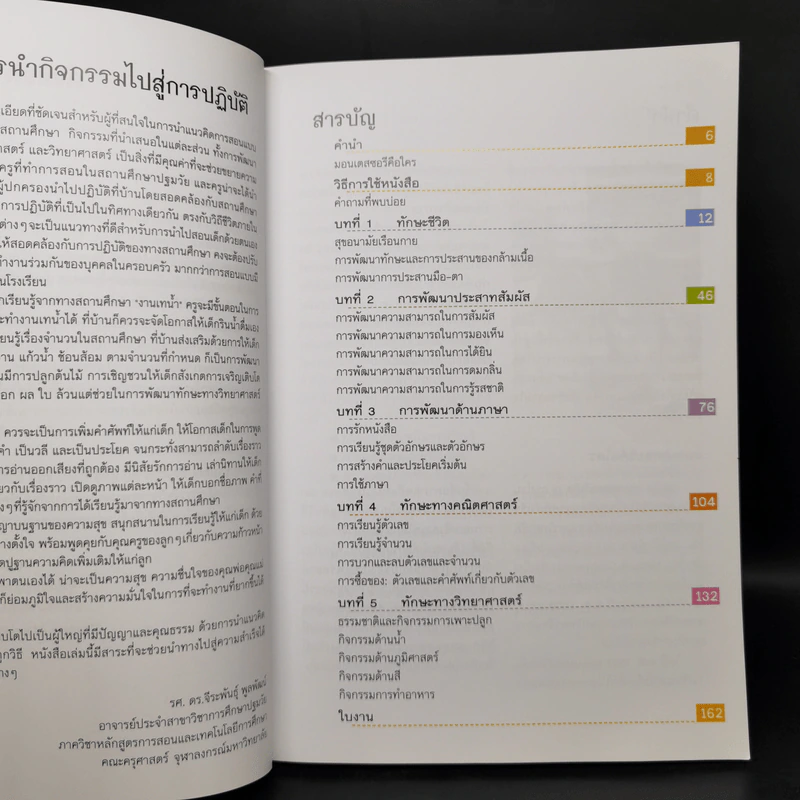 รนำกิจกรรมไปสู่การปฏิบัติ
เอียดที่ชัดเจนสำหรับผู้ที่สนใจในการนำแนวคิดการสอนแบบ
สถานศึกษา กิจกรรมที่นำเสนอในแต่ละส่วน ทั้งการพัฒนา
าสตร์ และวิทยาศาสตร์ เป็นสิ่งที่มีคุณค่าที่จะช่วยขยายความ
ครูที่ทำการสอนในสถานศึกษาปฐมวัย และครูน่าจะได้นำ
ผู้ปกครองนำไปปฏิบัติที่บ้านโดยสอดคล้องกับสถานศึกษา
การปฏิบัติที่เป็นไปในทิศทางเดียวกัน ตรงกับวิถีชีวิตภายใน
ต่างๆจะเป็นแนวทางที่ดีสำหรับการนำไปสอนเด็กด้วยตนเอง
ให้สอดคล้องกับการปฏิบัติของทางสถานศึกษา คงจะต้องปรับ
ทำงานร่วมกันของบุคคลในครอบครัว มากกว่าการสอนแบบมี
นโรงเรียน
กเรียนรู้จากทางสถานศึกษา "งานเทน้ำ" ครูจะมีขั้นตอนในการ
ะทำงานเทน้ำได้ ที่บ้านก็ควรจะจัดโอกาสให้เด็กรินน้ำดื่มเอง
ยนรู้เรื่องจำนวนในสถานศึกษา ที่บ้านส่งเสริมด้วยการให้เด็ก
าน แก้วน้ำ ช้อนส้อม ตามจำนวนที่กำหนด ก็เป็นการพัฒนา
นมีการปลูกต้นไม้ การเชิญชวนให้เด็กสังเกตการเจริญเติบโต
อก ผล ใบ ล้วนแต่ช่วยในการพัฒนาทักษะทางวิทยาศาสตร์
ควรจะเป็นการเพิ่มคำศัพท์ให้แก่เด็ก ให้โอกาสเด็กในการพูด
คำ เป็นวลี และเป็นประโยค จนกระทั่งสามารถลำดับเรื่องราว
การอ่านออกเสียงที่ถูกต้อง มีนิสัยรักการอ่าน เล่านิทานให้เด็ก
ยวกับเรื่องราว เปิดดูภาพแต่ละหน้า ให้เด็กบอกชื่อภาพ คำที่
งๆที่รู้จักจากการได้เรียนรู้มาจากทางสถานศึกษา
ญาบนฐานของความสุข สนุกสนานในการเรียนรู้ให้แก่เด็ก ด้วย
างตั้งใจ พร้อมพูดคุยกับคุณครูของลูกๆเกี่ยวกับความก้าวหน้า
ดปูฐานความคิดเพิ่มเติมให้แก่ลูก
พาตนเองได้ น่าจะเป็นความสุข ความชื่นใจของคุณพ่อคุณแม่
ก็ย่อมภูมิใจและสร้างความมั่นใจในการที่จะทำงานที่ยากขึ้นได้
บโตไปเป็นผู้ใหญ่ที่มีปัญญาและคุณธรรม ด้วยการนำแนวคิด
ูกวิธี หนังสือเล่มนี้มีสาระที่จะช่วยนำทางไปสู่ความสำเร็จได้
างๆ
รศ. ดร.จีระพันธุ์ พูลพัฒน์
อาจารย์ประจำสาขาวิชาการศึกษาปฐมวัย
ภาควิชาหลักสูตรการสอนและเทคโนโลยีการศึกษา
คณะครุศาสตร์ จุฬาลงกรณ์มหาวิทยาลัย
สารบัญ
คำนำ 6
มอนเตสซอรี่คือใคร
วิธีการใช้หนังสือ 8
คำถามที่พบบ่อย
บทที่ 1 ทักษะชีวิต 12
สุขอนามัยเรือนกาย
การพัฒนาทักษะและการประสานของกล้ามเนื้อ
การพัฒนาการประสานมือ-ตา
บทที่ 2 การพัฒนาประสาทสัมผัส 46
การพัฒนาความสามารถในการสัมผัส
การพัฒนาความสามารถในการมองเห็น
การพัฒนาความสามารถในการได้ยิน
การพัฒนาความสามารถในการดมกลิ่น
การพัฒนาความสามารถในการรู้รสชาติ
บทที่ 3 การพัฒนาด้านภาษา 76
การรักหนังสือ
การเรียนรู้ชุดตัวอักษรและตัวอักษร
การสร้างคำและประโยคเริ่มต้น
การใช้ภาษา
บทที่ 4 ทักษะทางคณิตศาสตร์ 104
การเรียนรู้ตัวเลข
การเรียนรู้จำนวน
การบวกและลบตัวเลขและจำนวน
การซื้อของ: ตัวเลขและคำศัพท์เกี่ยวกับตัวเลข
บทที่ 5 ทักษะทางวิทยาศาสตร์ 132
ธรรมชาติและกิจกรรมการเพาะปลูก
กิจกรรมด้านน้ำ
กิจกรรมด้านภูมิศาสตร์
กิจกรรมด้านสี
กิจกรรมการทำอาหาร
ใบงาน 162